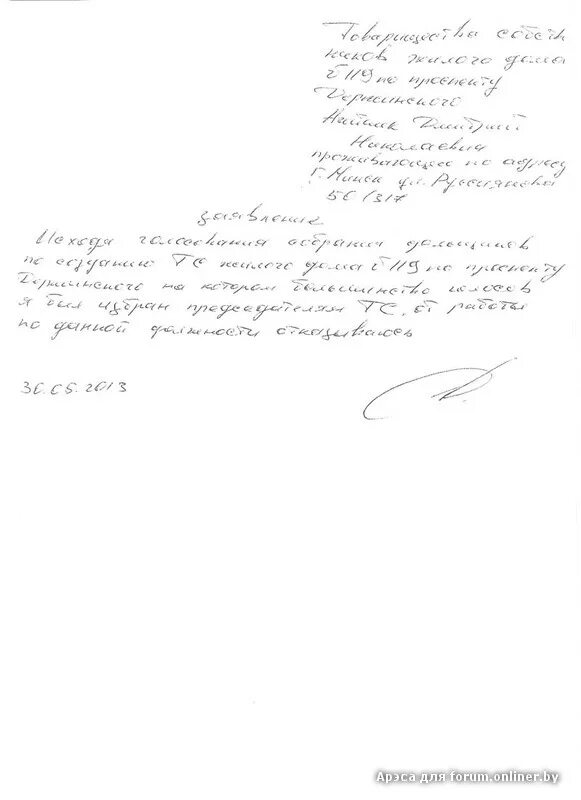 Товарищества собствен
ников жилого дома
№119 по проспекту
Дзержинского
Дмитрий
Николаевич
проживающее по адресу
г. Минск ул. Руссиянова
50/317
заявление
Исходя голосования собрания дольщиков
по созданию ТС жилого дома №119 по проспекту
Дзержинского на котором большинство голосов
я был избран председателям ТС, от работы
по данной должности отказываюсь
30.05.2013
Арэса для forum.onliner.by